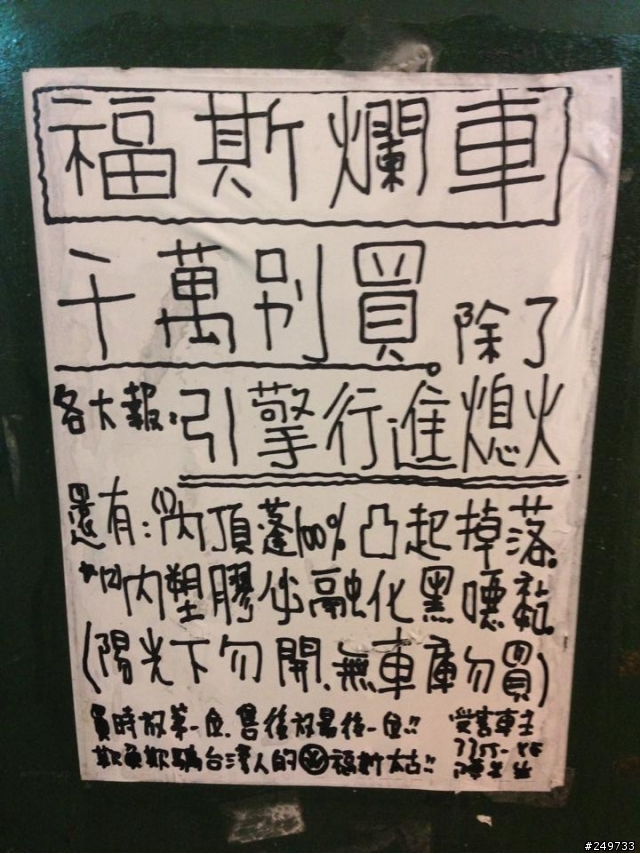 福斯爛車
千萬別買。除了
各大報:引擎行進熄火
還有:(1)內頂蓬100%凸起掉落。
(2)內塑膠必融化黑嘿黏。
(陽光下勿開.無車庫勿買)
買時放第一位.售後放最後一位!! 受害車主
欺負欺騙台灣人的福斯太古!!
#249733